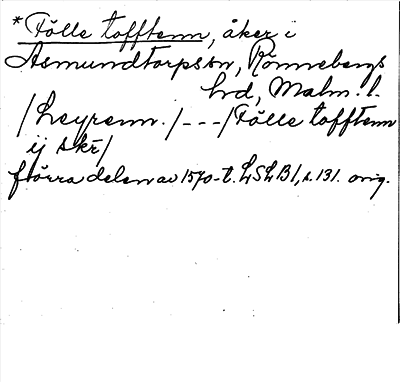 *Fölle tofften, åker i
Asmundtorps sn, Rönnebergs
hd, Malm. l.
/Leyrenn./---/Fölle tofftenn
ij skr/
förra delen av 1570-t. LSLB1, s. 131. orig.